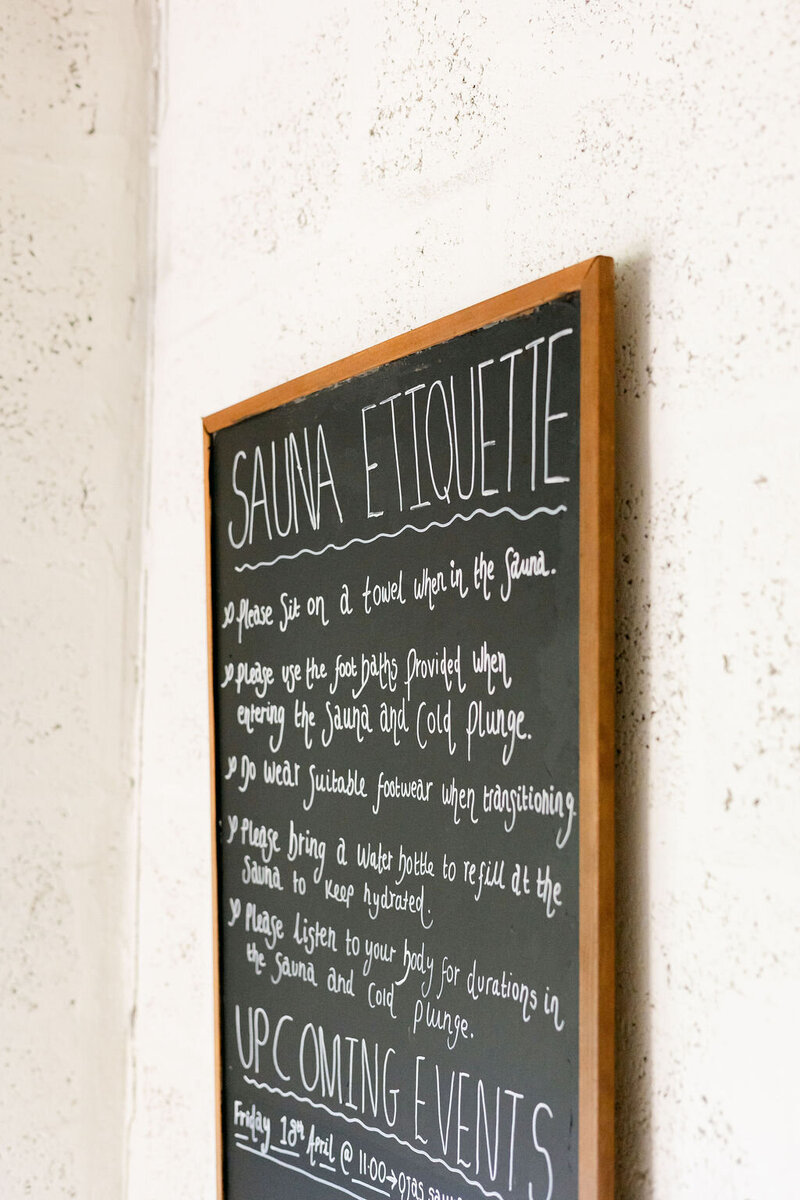 SAUNA ETIQUETTE
Please Sit on a towel when in the Sauna.
Please use the foot baths Provided when
entering the Sauna and Cold Plunge.
Do wear Suitable footwear when transitioning.
Please bring a water bottle to refill at the
Sauna to keep hydrated.
Please Listen to your body for durations in
the Sauna and Cold Plunge.
UPCOMING EVENTS
Friday 18th April @ 11:00→